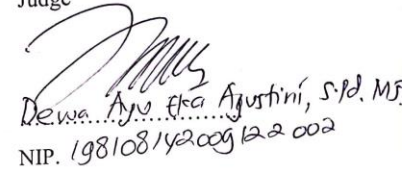 Judge
Dewa Ayu Eka Agustini, S.Pd. MS.
NIP. 198108142009122002